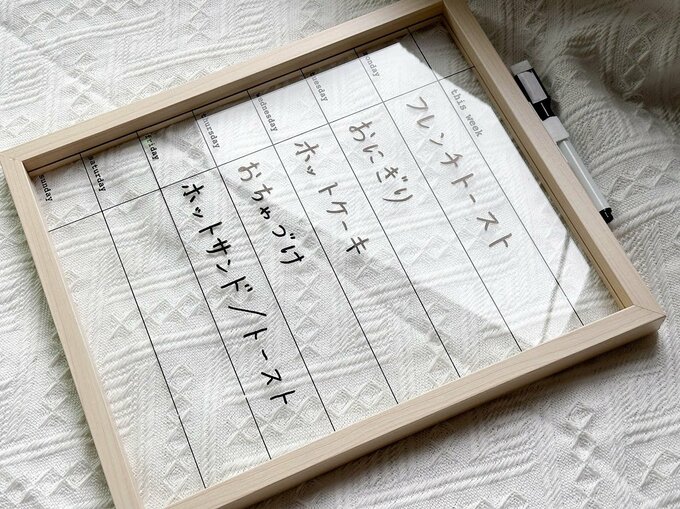 this week
monday
フレンチトースト
tuesday
おにぎり
wednesday
ホットケーキ
thursday
おちゃづけ
friday
ホットサンド/トースト
saturday
sunday